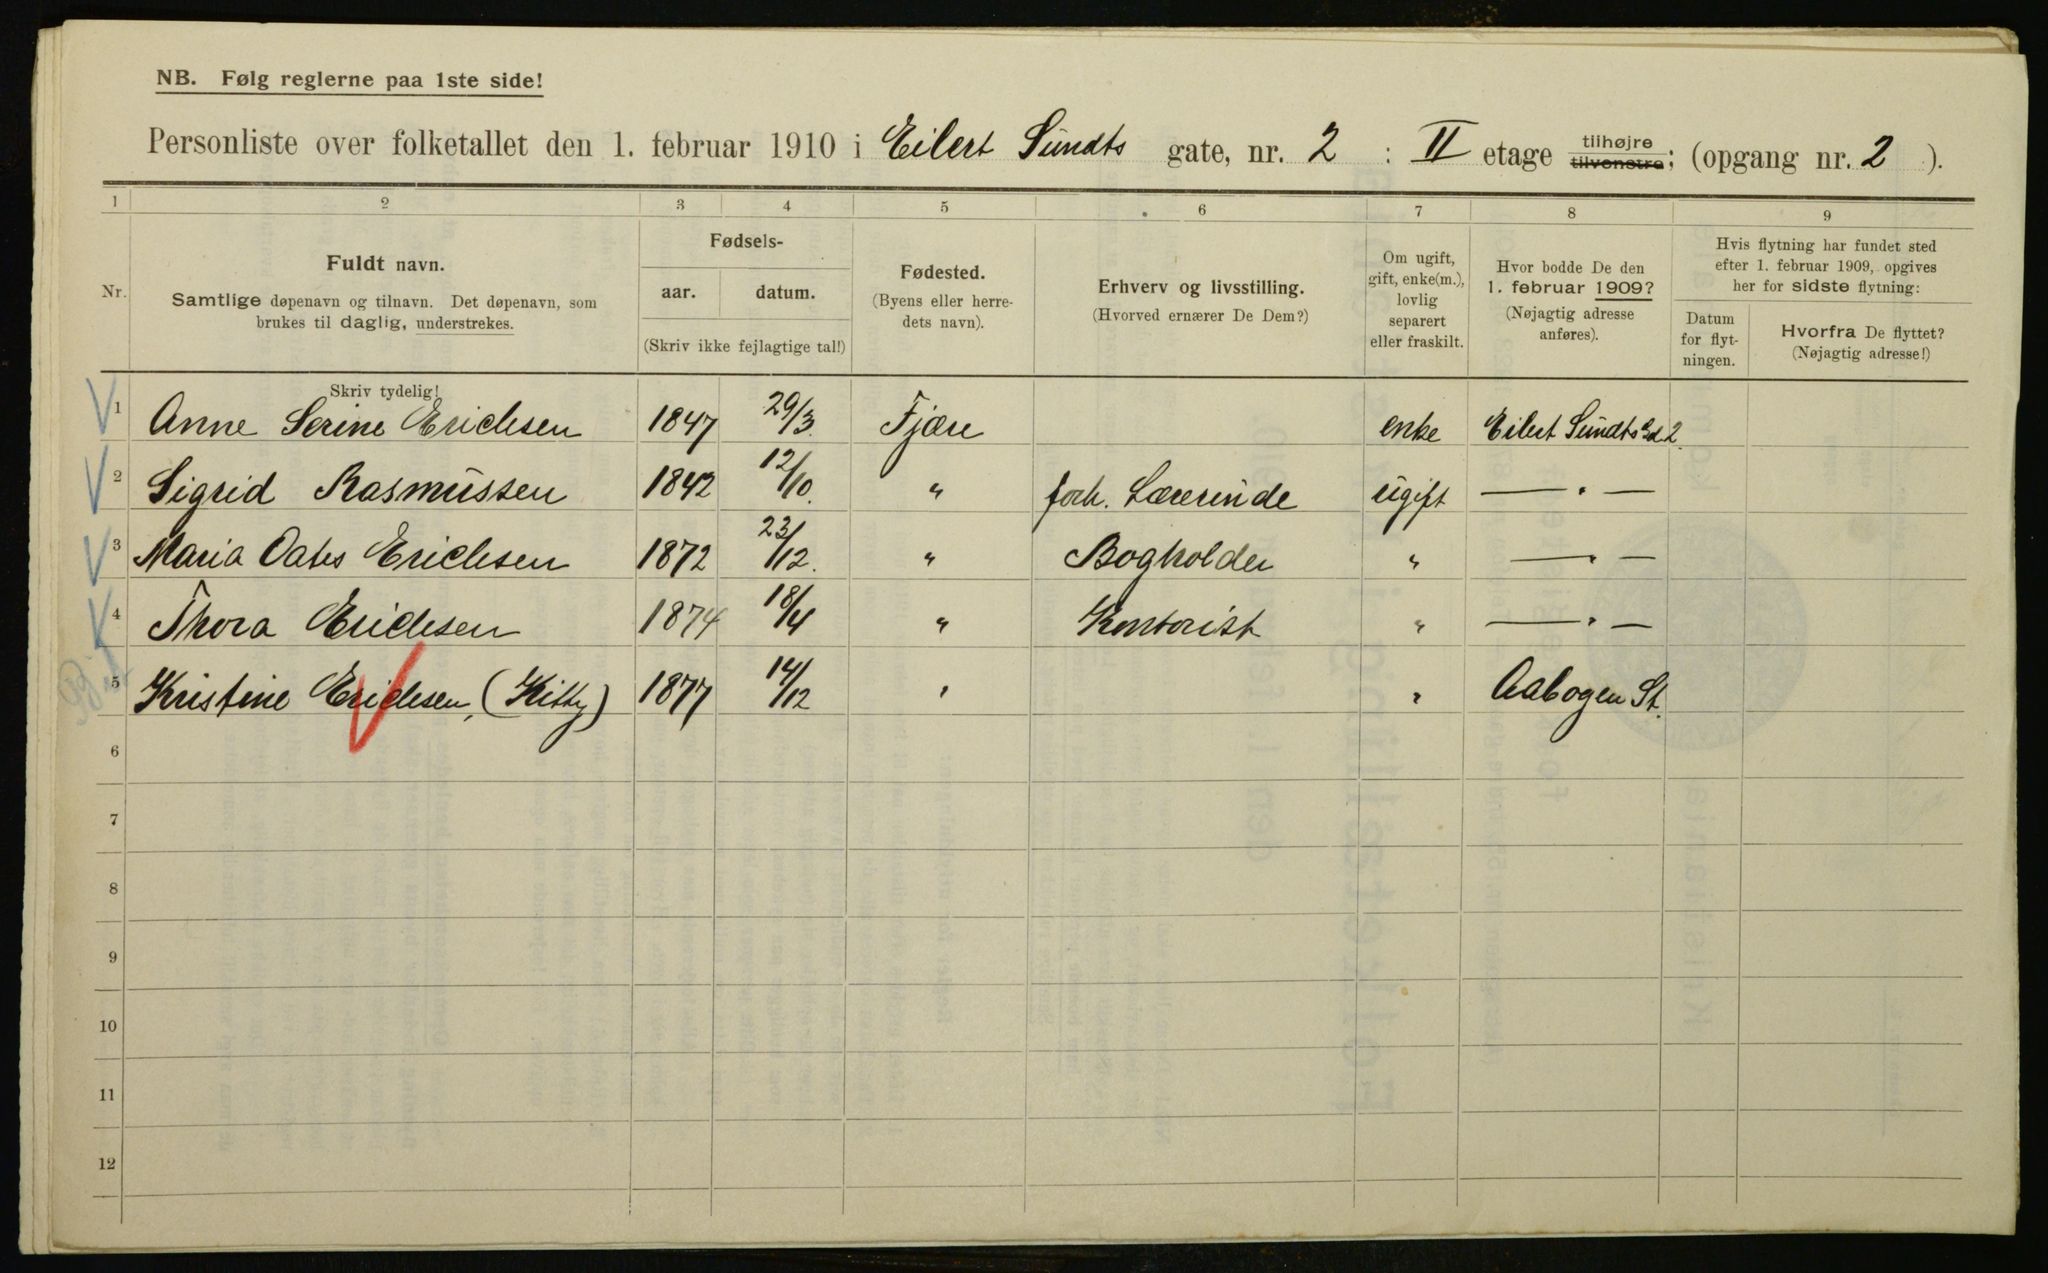 NB. Følg reglerne paa 1ste side!
Personliste over folketallet den 1. februar 1910 i Eilert Sundts gate, nr. 2 : II etage tilhøjre tilvenstre; (opgang nr. 2 ).
1 2 3 4 5 6 7 8 9
Nr.
Fuldt navn.
Samtlige døpenavn og tilnavn. Det døpenavn, som
brukes til daglig, understrekes.
Skriv tydelig!
Fødsels-
aar. datum.
(Skriv ikke fejlagtige tal!)
Fødested.
(Byens eller herre-
dets navn).
Erhverv og livsstilling.
(Hvorved ernærer De Dem?)
Om ugift,
gift, enke(m.),
lovlig
separert
eller fraskilt.
Hvor bodde De den
1. februar 1909?
(Nøjagtig adresse
anføres).
Hvis flytning har fundet sted
efter 1. februar 1909, opgives
her for sidste flytning:
Datum
for flyt-
ningen.
Hvorfra De flyttet?
(Nøjagtig adresse!)
1 Anne Serine Ericksen 1847 29/3. Fjære enke Eilert Sundts Gd 2.
2 Sigrid Rasmussen 1842 12/10. " forh. Lærerinde ugift — " —
3 Maria Oates Ericksen 1872 23/12. " Bogholder " — " —
4 Thora Ericksen 1874 18/4 " Kontorist " — " —
5 Kristine Ericksen, (Kitty) 1877 14/12 " " Aabogen St.
6
7
8
9
10
11
12